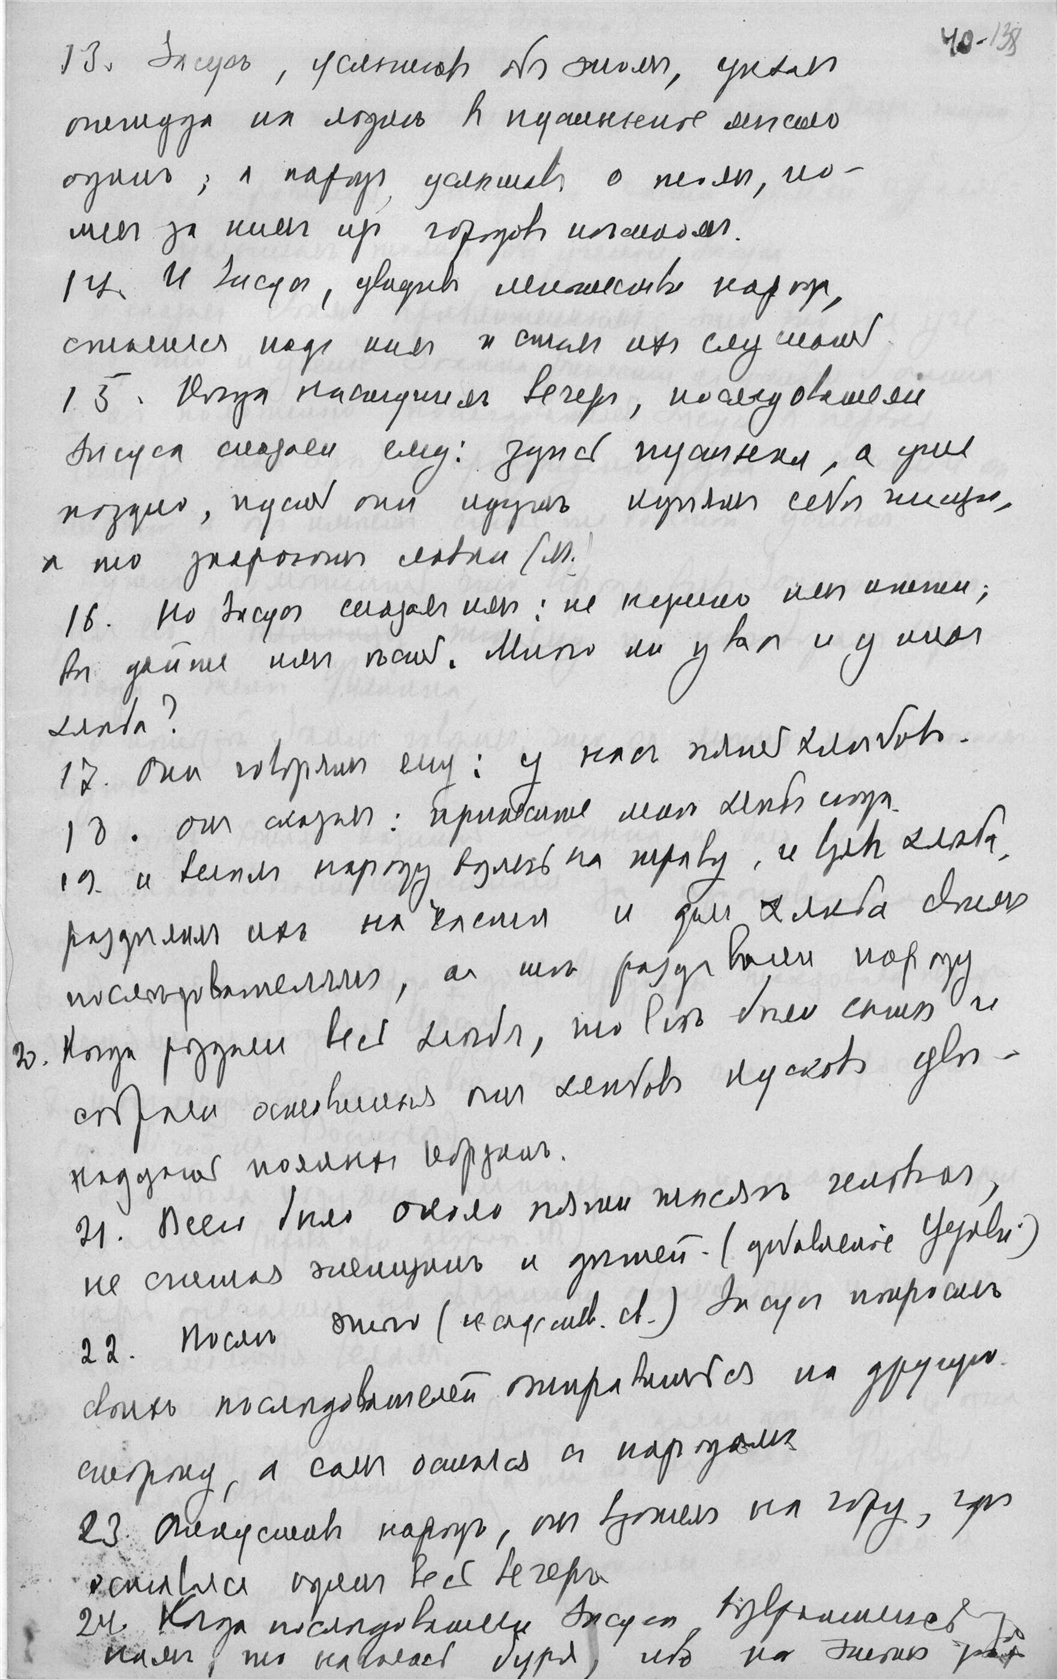 40-138
13. Іисусъ, услышавъ объ этомъ, уѣхалъ
оттуда на лодкѣ въ пустынное мѣсто
одинъ; а народъ, услышавъ о немъ, по-
шелъ за нимъ изъ городовъ пѣшкомъ.
14. И Іисусъ, увидѣвъ множество народа,
сжалился надъ ними и сталъ ихъ
15. Когда наступилъ вечеръ, последователи
Іисуса сказали ему: здѣсь пустыня, а уже
поздно, пусть они идутъ купятъ себѣ пищи,
а то закроютъ лавки
16. Но Іисусъ сказалъ имъ: не нужно имъ итти;
вы дайте имъ ѣсть. Много ли у васъ и у нихъ
хлѣба?
17. Они говорятъ ему: у насъ пять хлѣбовъ.
18. Онъ сказалъ: принесите мнѣ хлѣбъ сюда.
19. и велѣлъ народу возлечь на траву, и взявъ хлѣба,
раздѣлилъ ихъ на части и далъ хлѣба своимъ
послѣдователямъ, а тѣ раздавали народу
20. Когда роздали весь хлѣбъ, то всѣ были сыты и
собрали оставшихся отъ хлѣбовъ кусковъ двѣ-
надцать полныхъ корзинъ.
21. Всего было около пяти тысячъ человѣкъ,
не считая женщинъ и дѣтей. (добавленіе Церкви)
22. Послѣ этого Іисусъ попросилъ
своихъ послѣдователей отправиться на другую
сторону, а самъ остался съ народомъ
23. Отпустивъ народъ, онъ взошелъ на гору, гдѣ
оставался одинъ весь вечеръ
24. Когда послѣдователи Іисуса возвращались
то началась буря, на этомъ